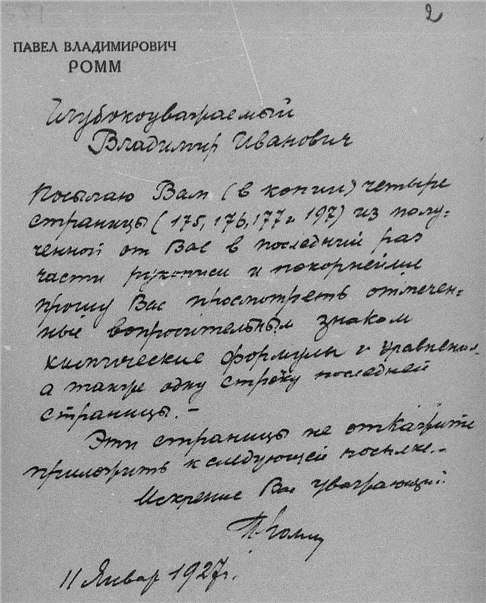 2
ПАВЕЛ ВЛАДИМИРОВИЧ
РОММ
Глубокоуважаемый
Владимир Иванович
Посылаю Вам (в копии) четыре
страницы (175, 176, 177 и 197) из полу-
ченной от Вас в последний раз
части рукописи и покорнейше
прошу Вас просмотреть отмечен-
ные вопросительным знаком
химические формулы и уравнения,
а также одну строку последней
страницы. –
Эти страницы не откажите
приложить к следующей посылке. –
Искренне Вас уважающий
П. Ромм
11 Январ 1927 г.